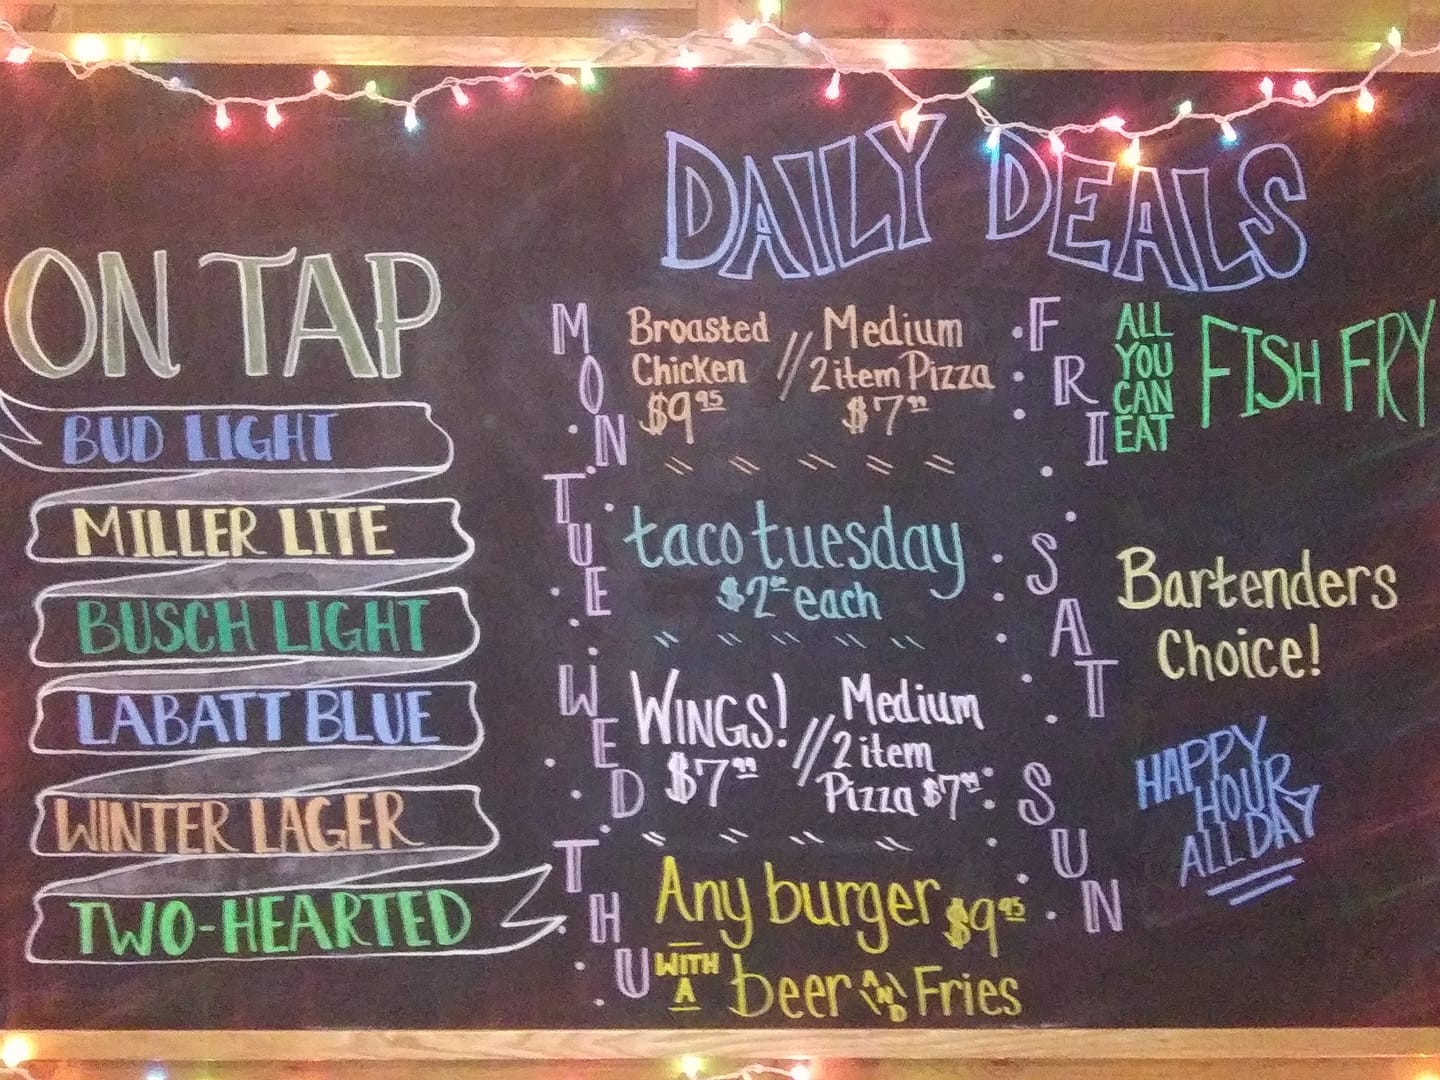 ON TAP
BUD LIGHT
MILLER LITE
BUSCH LIGHT
LABATT BLUE
WINTER LAGER
TWO-HEARTED
DAILY DEALS
MON
Broasted
Chicken
$9.95
//
Medium
2 item Pizza
$7.99
TUE
taco tuesday
each
WED
WINGS!
$7.99
//
Medium
2 item
Pizza $7.99
THU
Any burger $9.95
WITH
A
beer AND Fries
FRI
ALL
YOU
CAN
EAT
FISH FRY
SAT
Bartenders
Choice!
SUN
HAPPY
HOUR
ALL DAY